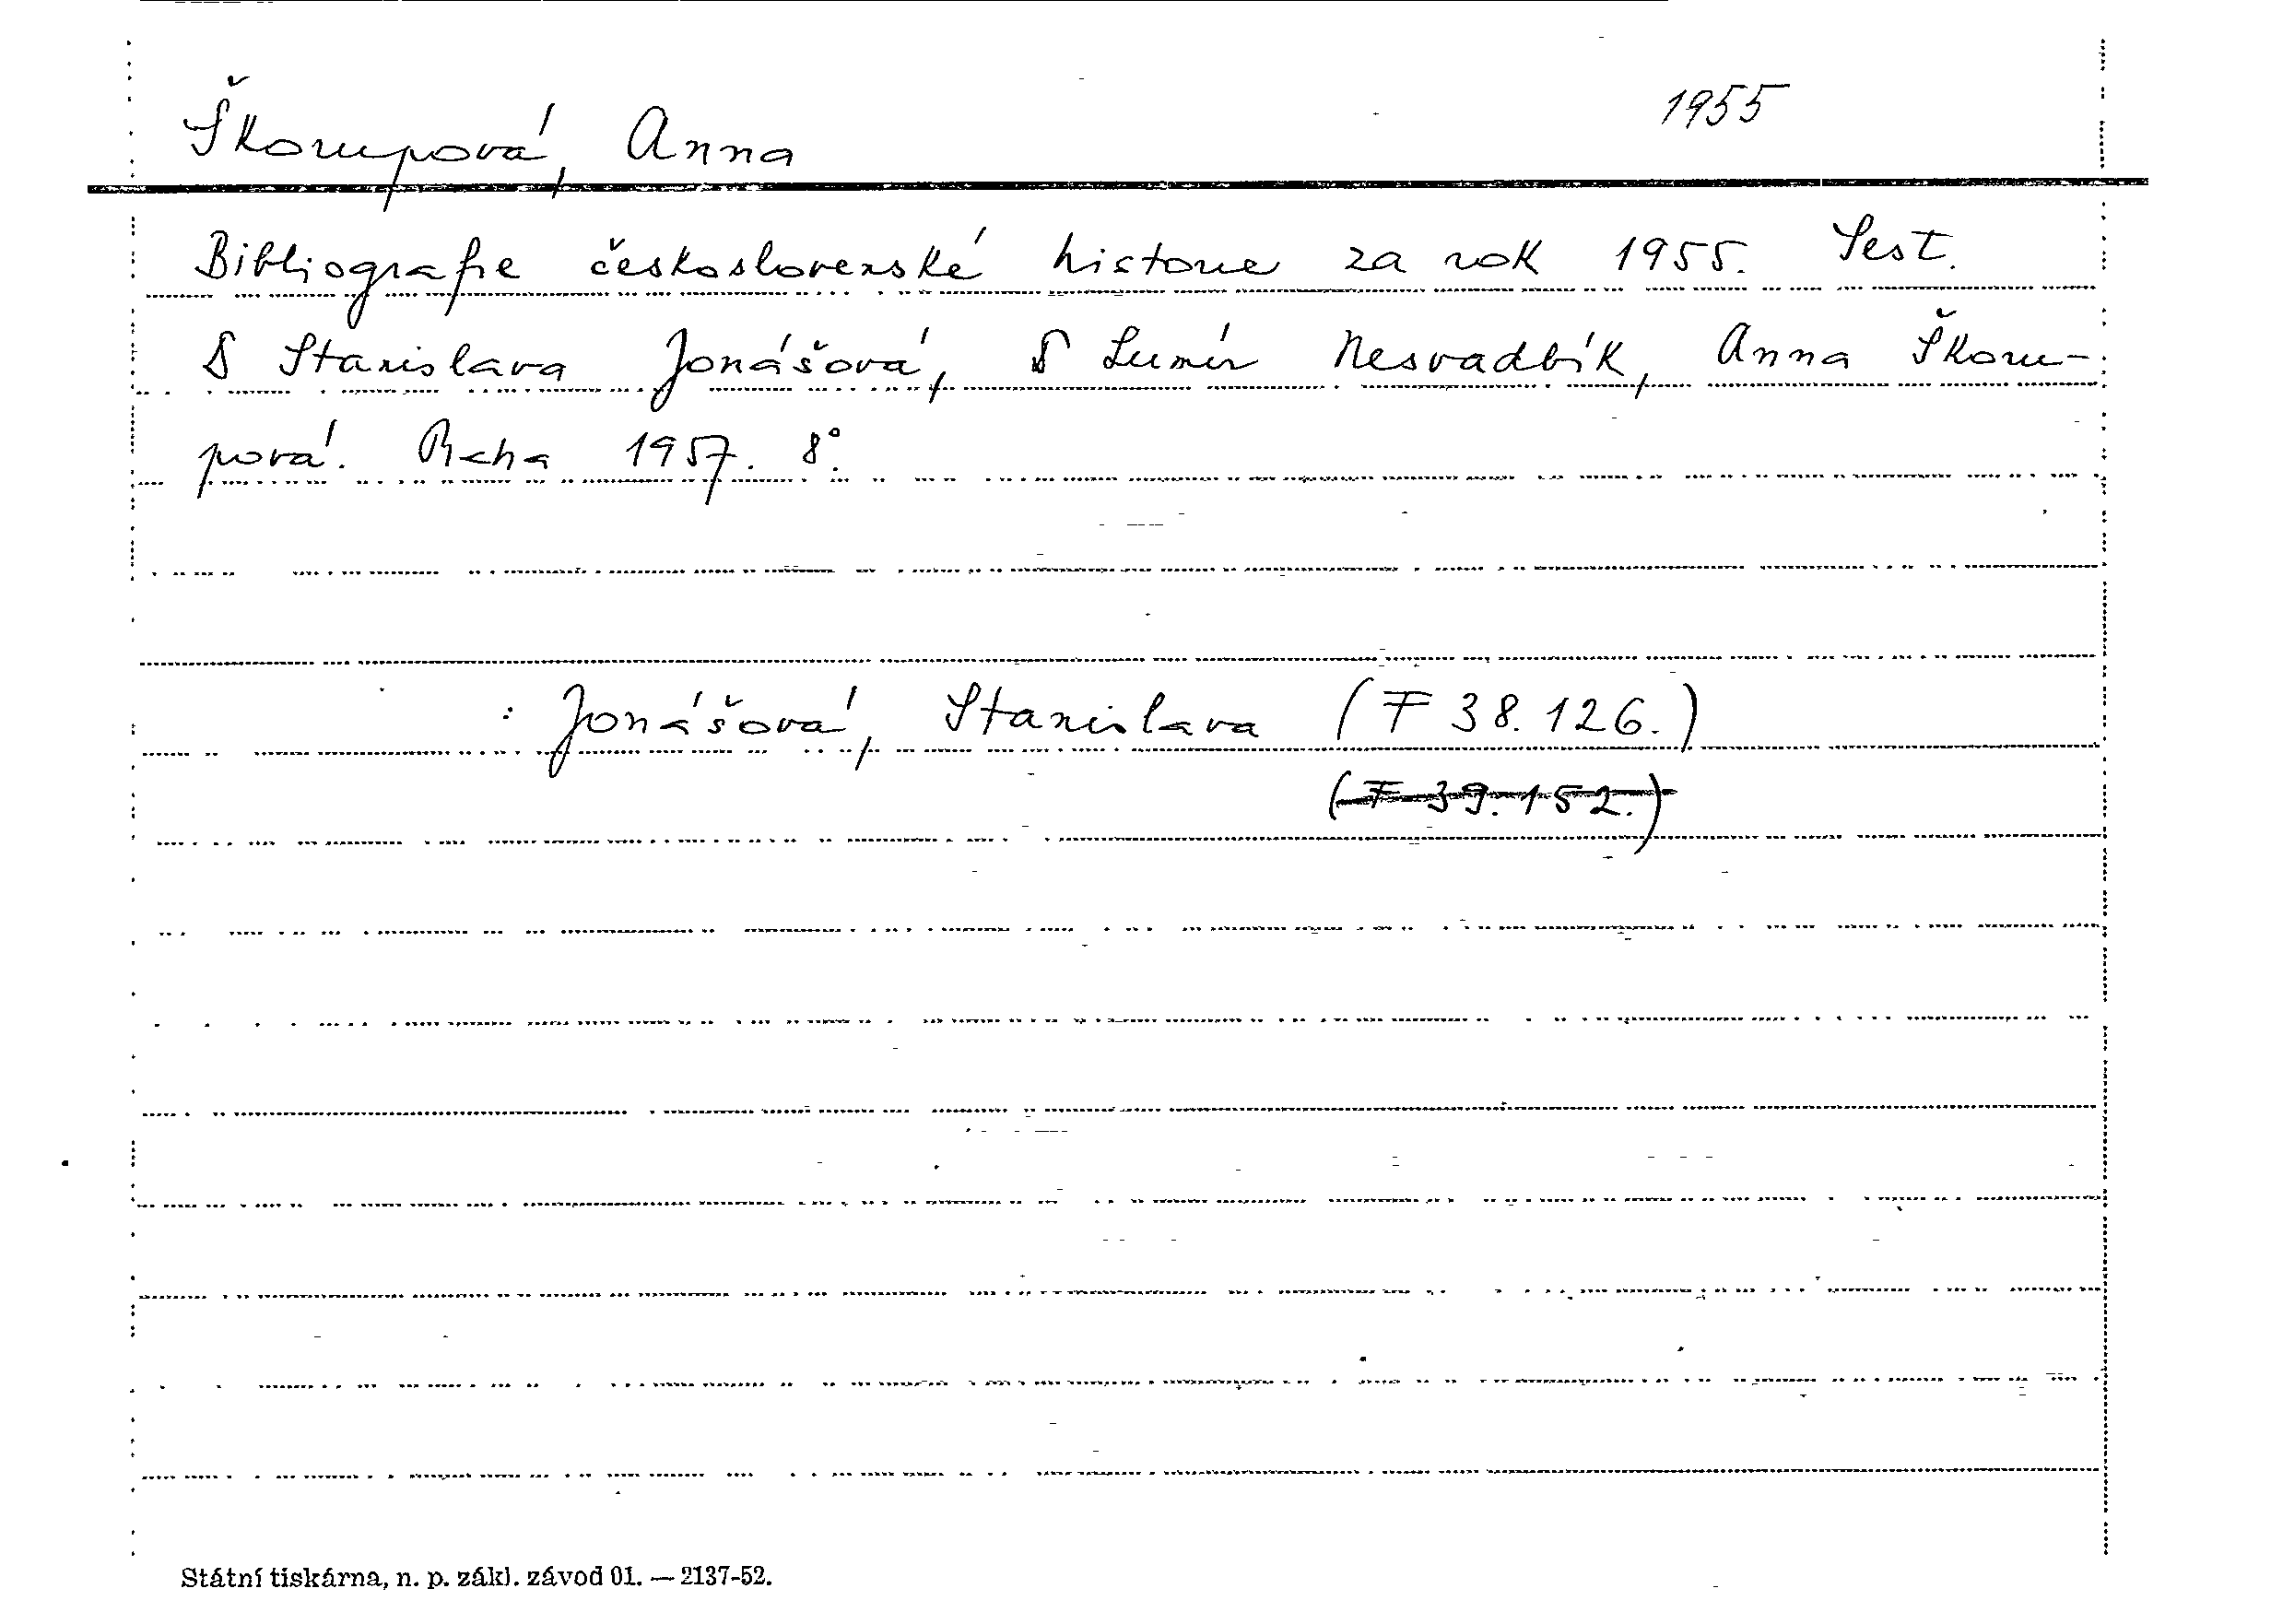 Škorupová, Anna 1955
Bibliografie československé historie za rok 1955. Sest.
Stanislava Jonášová, Lumír Nesvadbík, Anna Škoru-
pová. Praha 1957. 8°.
: Jonášová, Stanislava (F 38.126.)
(F 39.152.)
Státní tiskárna, n. p. zákl. závod 01. — 2137-52.